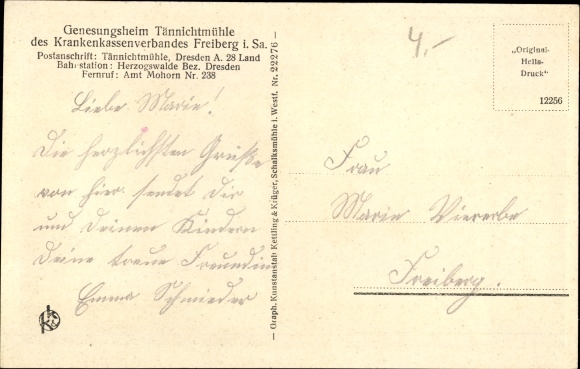 Genesungsheim Tännichtmühle
des Krankenkassenverbandes Freiberg i. Sa.
Postanschrift: Tännichtmühle, Dresden A. 28 Land
Bahnstation: Herzogswalde Bez. Dresden
Fernruf: Amt Mohorn Nr. 238
Liebe Marie!
Die herzlichsten Grüße
von hier sendet Dir
und Deinen Kindern
Deine treue Freundin
Emma Schmieder
— Graph. Kunstanstalt Kettling & Krüger, Schalksmühle i. Westf. Nr. 22276 —
4,-
„Original-
Hella-
Druck"
12256
Frau
Marie Viererbe
Freiberg.